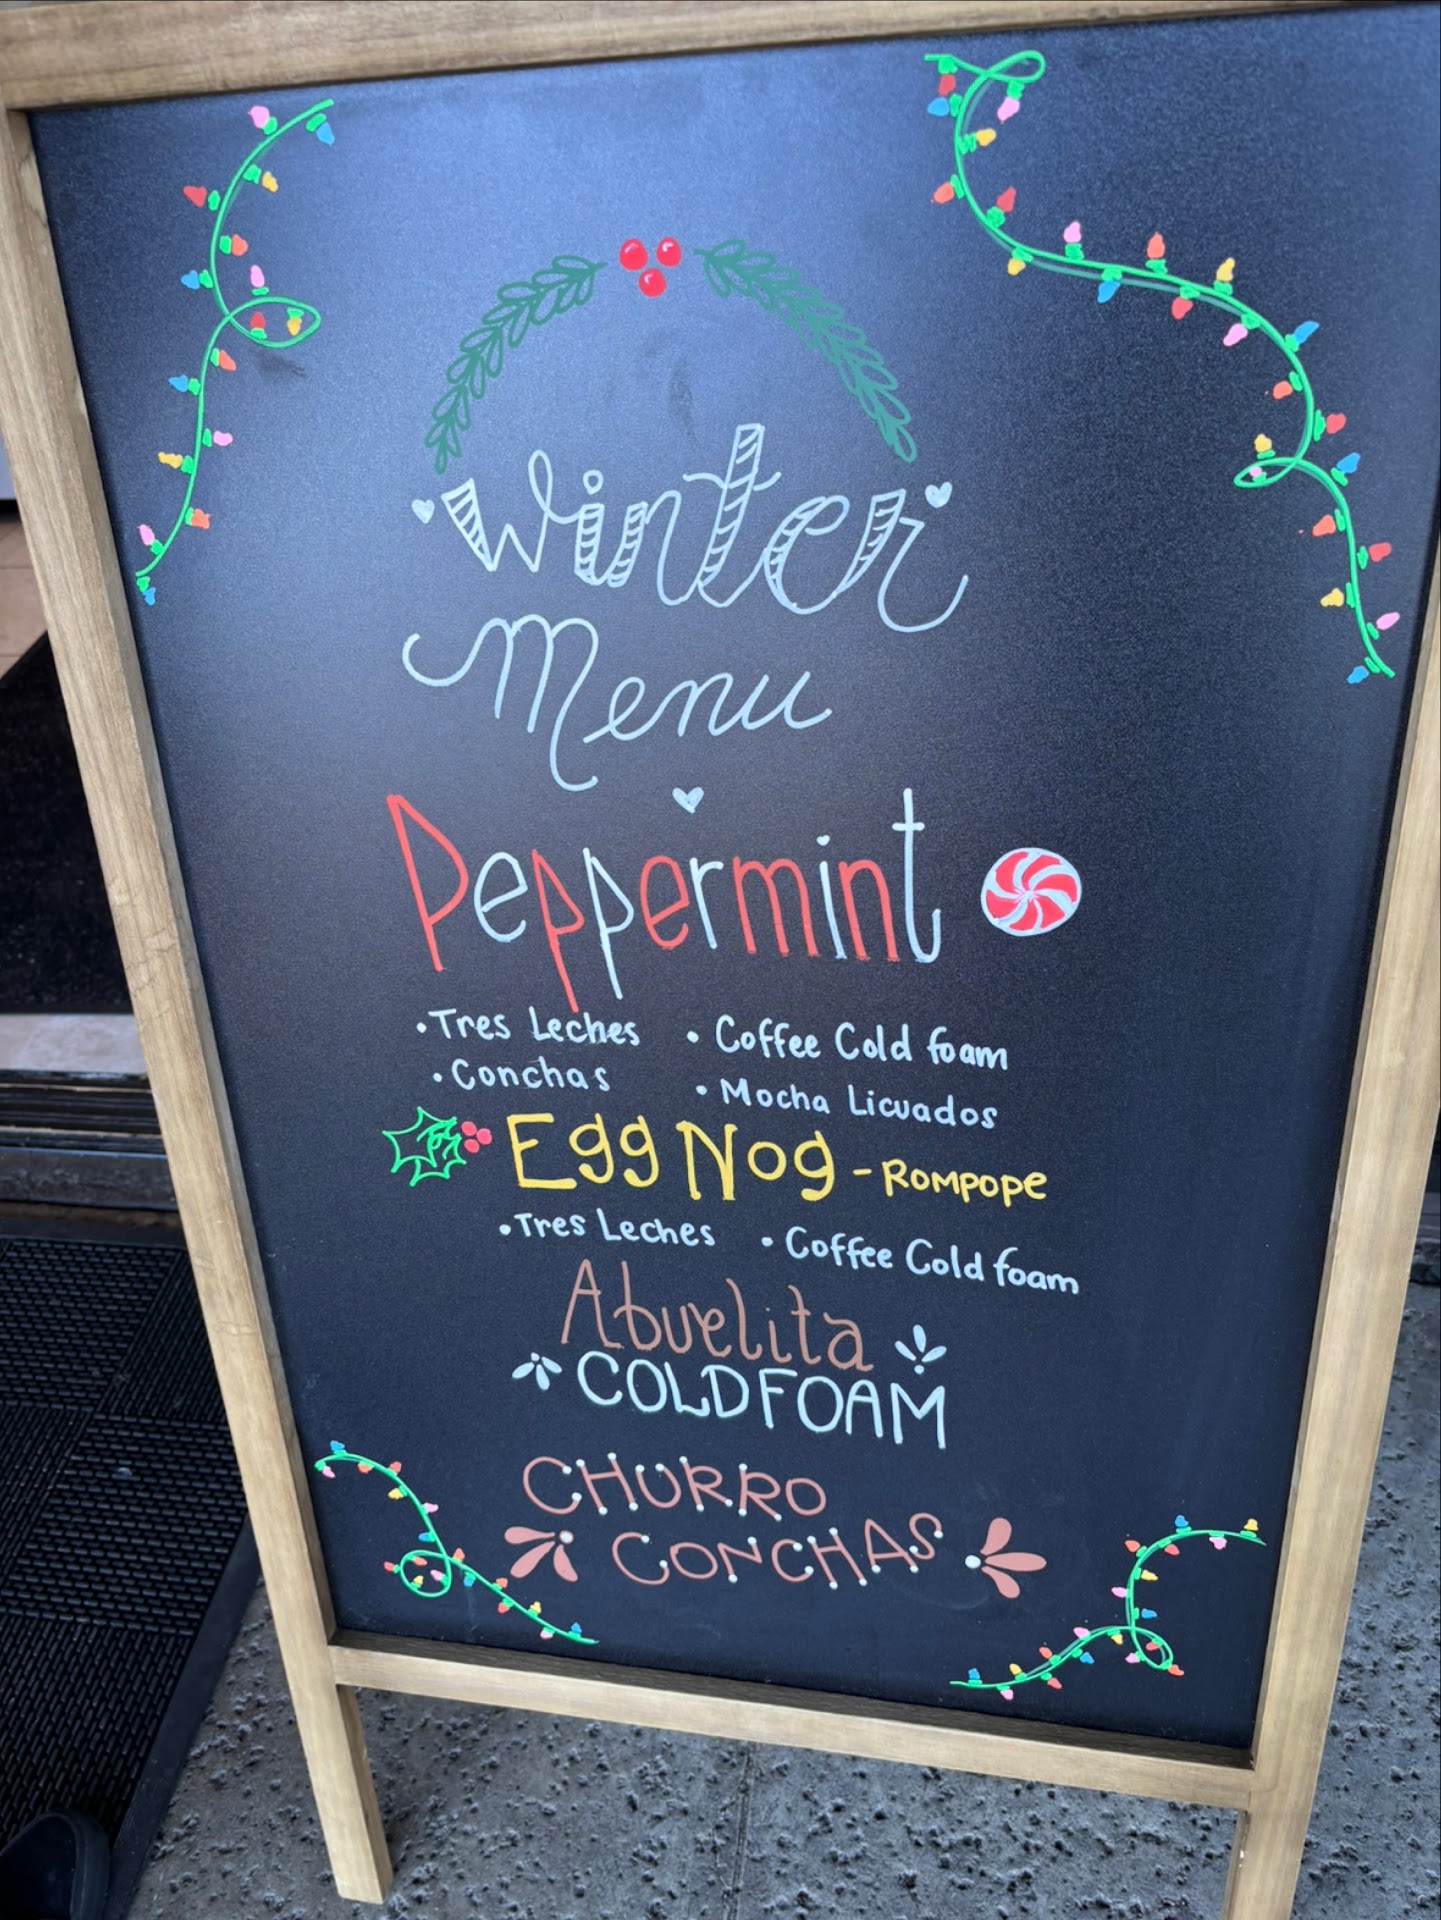 Winter
Menu
Peppermint
• Tres Leches • Coffee Cold foam
• Conchas • Mocha Licuados
Egg Nog - Rompope
• Tres Leches • Coffee Cold foam
Abuelita
COLD FOAM
CHURRO
CONCHAS